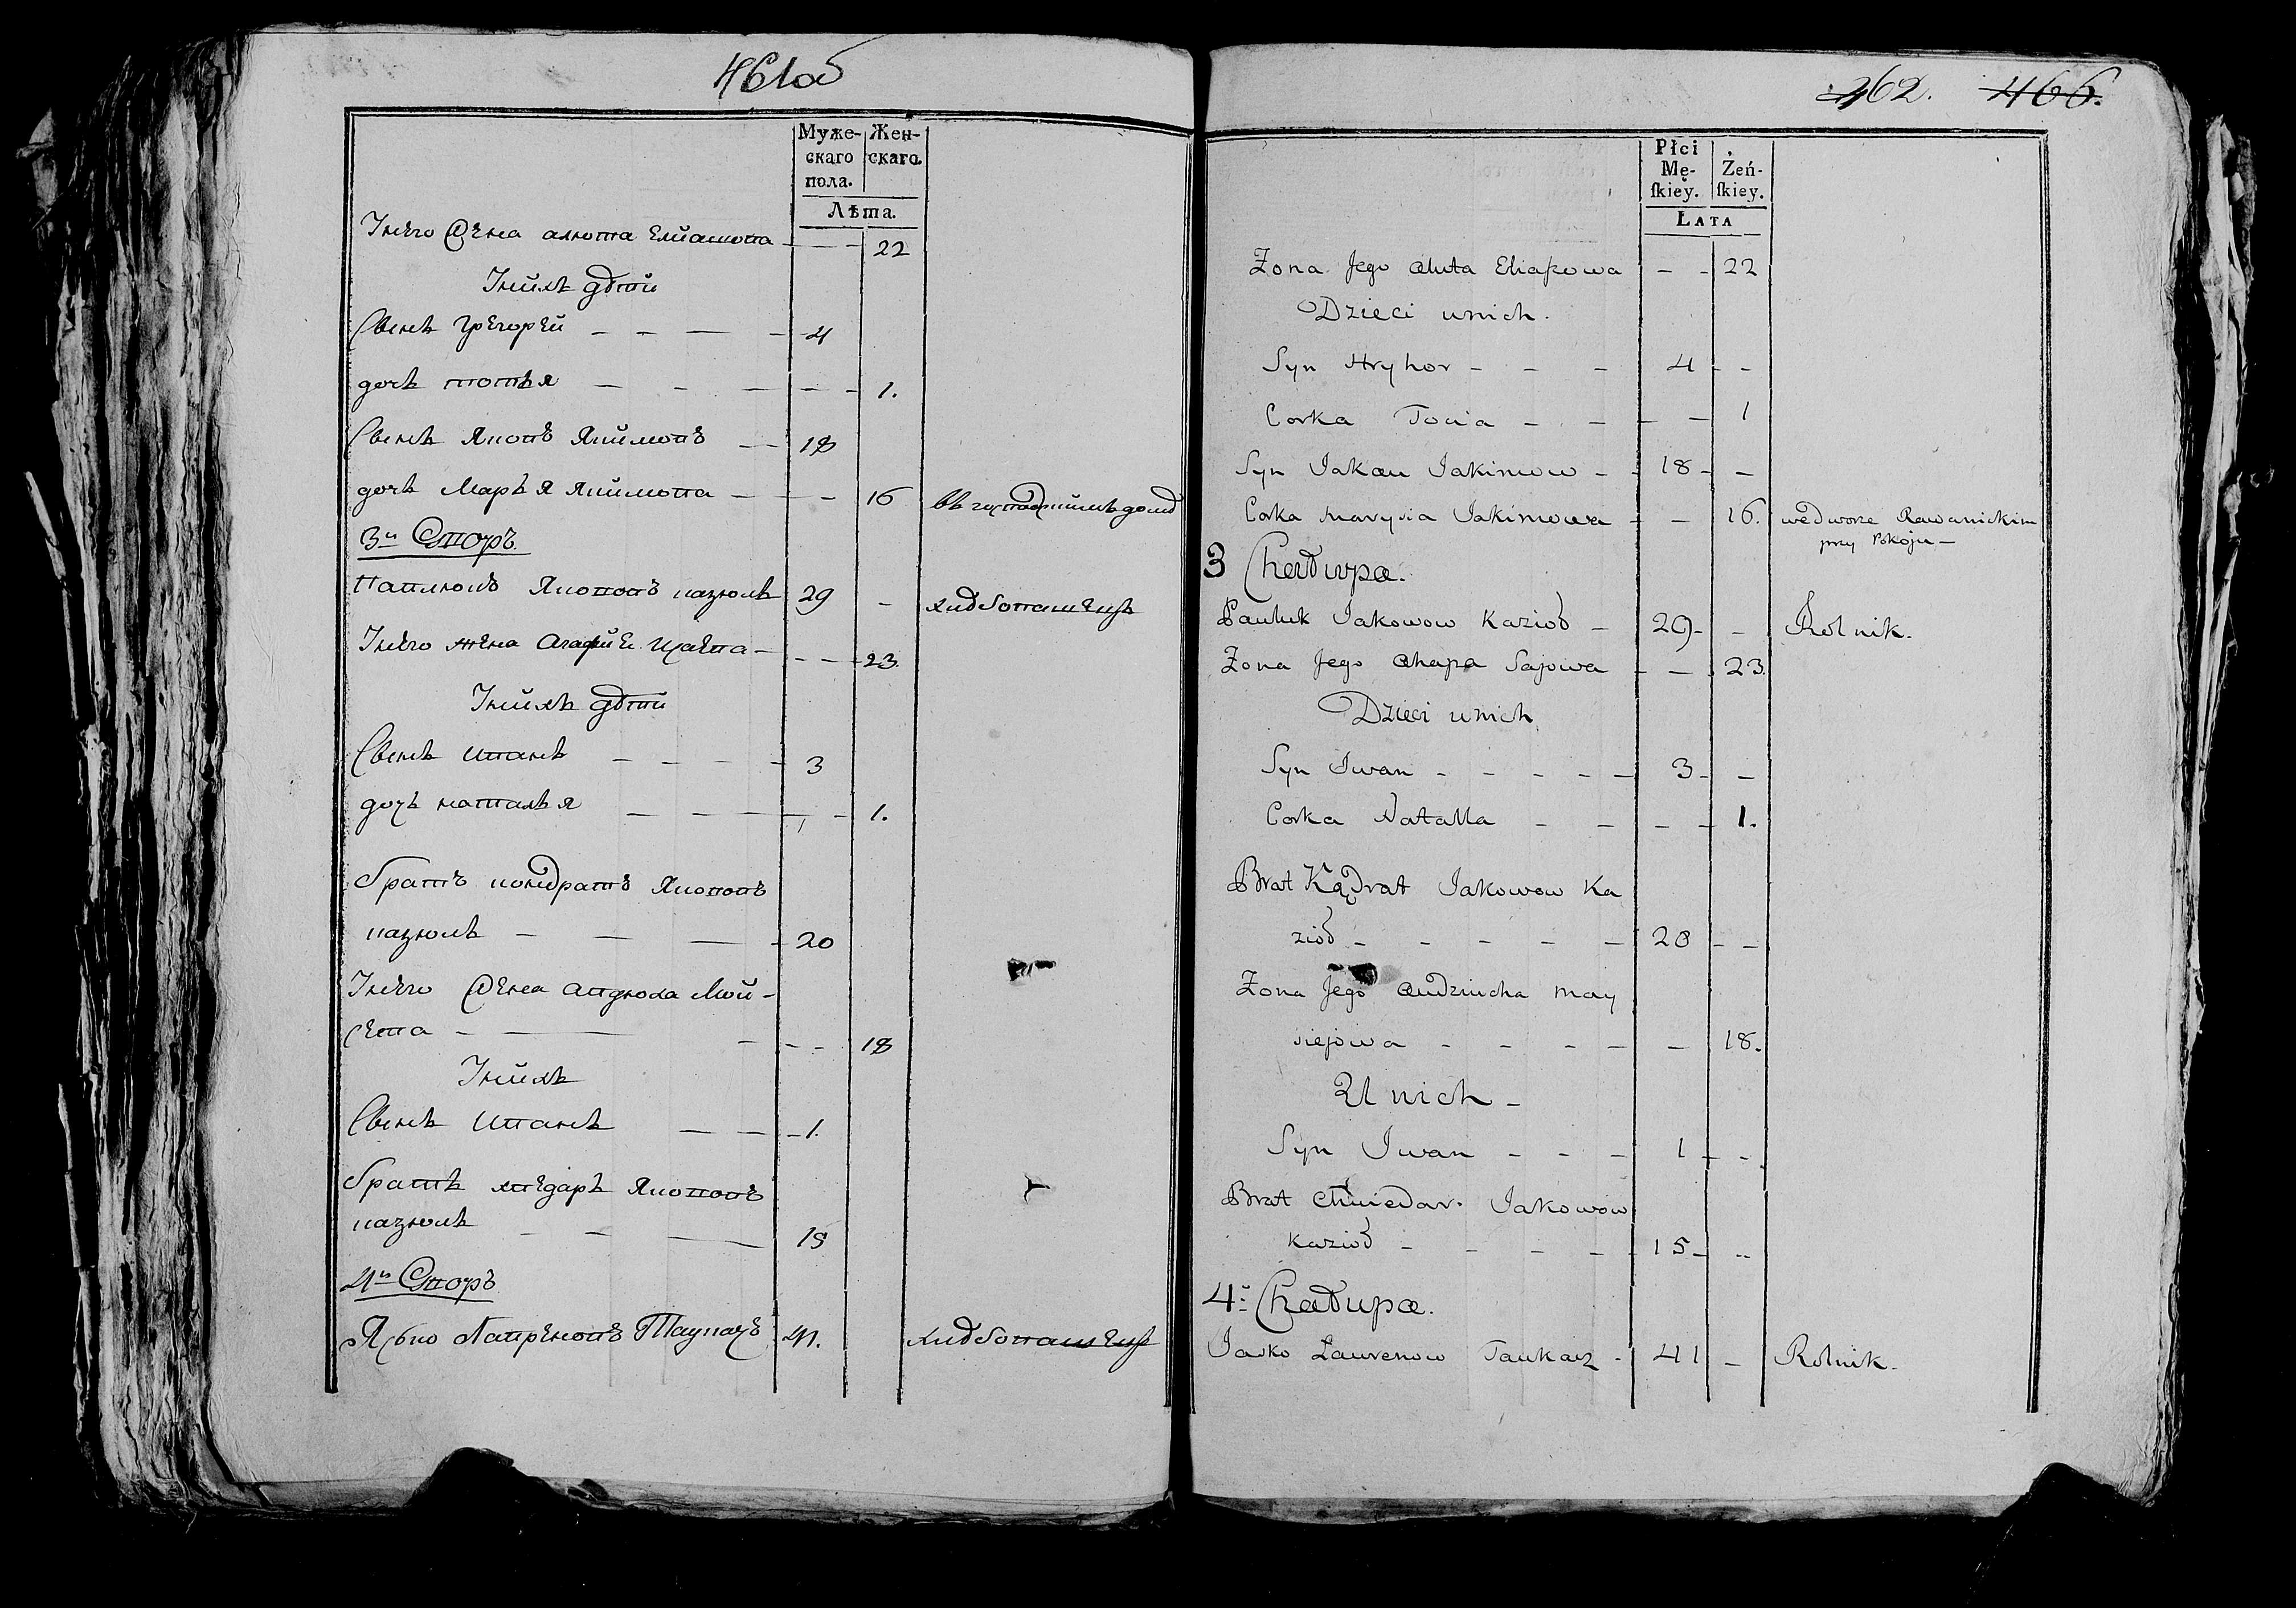 461об
Муже- Жен-
скаго скаго.
пола.
Лѣта.
Унего жена алюта Елиашова — — 22
Унихъ дѣти
Сынъ Грегорей — — — — 4
дочь тотья — — — — — 1.
Сынъ Яковъ Якимовъ — — 18
дочь Марья Якимова — — — 16 въ господскимъ домѣ
3й Дворъ
Павлюкъ Якововъ казюлъ 29 — хлѣбопашецъ
Унего жена Агафие — — — 23.
Унихъ дѣти
Сынъ иванъ — — — — 3
дочь наталья — — — — — 1.
братъ кондратъ Якововъ
казюлъ — — — — 20
Унего жена авдюха Мои-
сева — — — — — 18
Унихъ
Сынъ иванъ — — — 1.
братъ хведаръ Якововъ
казюлъ — — — 15
4й Дворъ
Ясько Лавреновъ Таукачъ 41. хлѣбопашецъ
462. 466.
Płci
Mę- Żeń-
ſkiey. ſkiey.
LATA
Zona Jego Aluta Eliaszowa — — 22
Dzieci unich.
Syn Hryhor — — — 4 — —
Corka Tocia — — — — 1
Syn Jakau Jakimow — — 18 — —
Corka Marysia Jakimowa — — 16. wedworze Rawanickim
przy Pokoju —
3 Chałupa.
Pauluk Jakowow Kazioł — 29 — — Rolnik.
Zona Jego Ahapa Sajowa — — 23.
Dzieci unich
Syn Iwan — — — — — 3 — —
Corka Natalla — — — — 1.
Brat Kądrat Jakowow Ka
zioł — — — — — 20 — —
Zona Jego Audziucha May
siejowa — — — — — 18.
U nich —
Syn Iwan — — — 1 — —
Brat Chwiedar. Jakowow
Kazioł — — — — — 15 — —
4. Chałupa.
Jaśko Laurenow Taukacz — 41 — Rolnik.